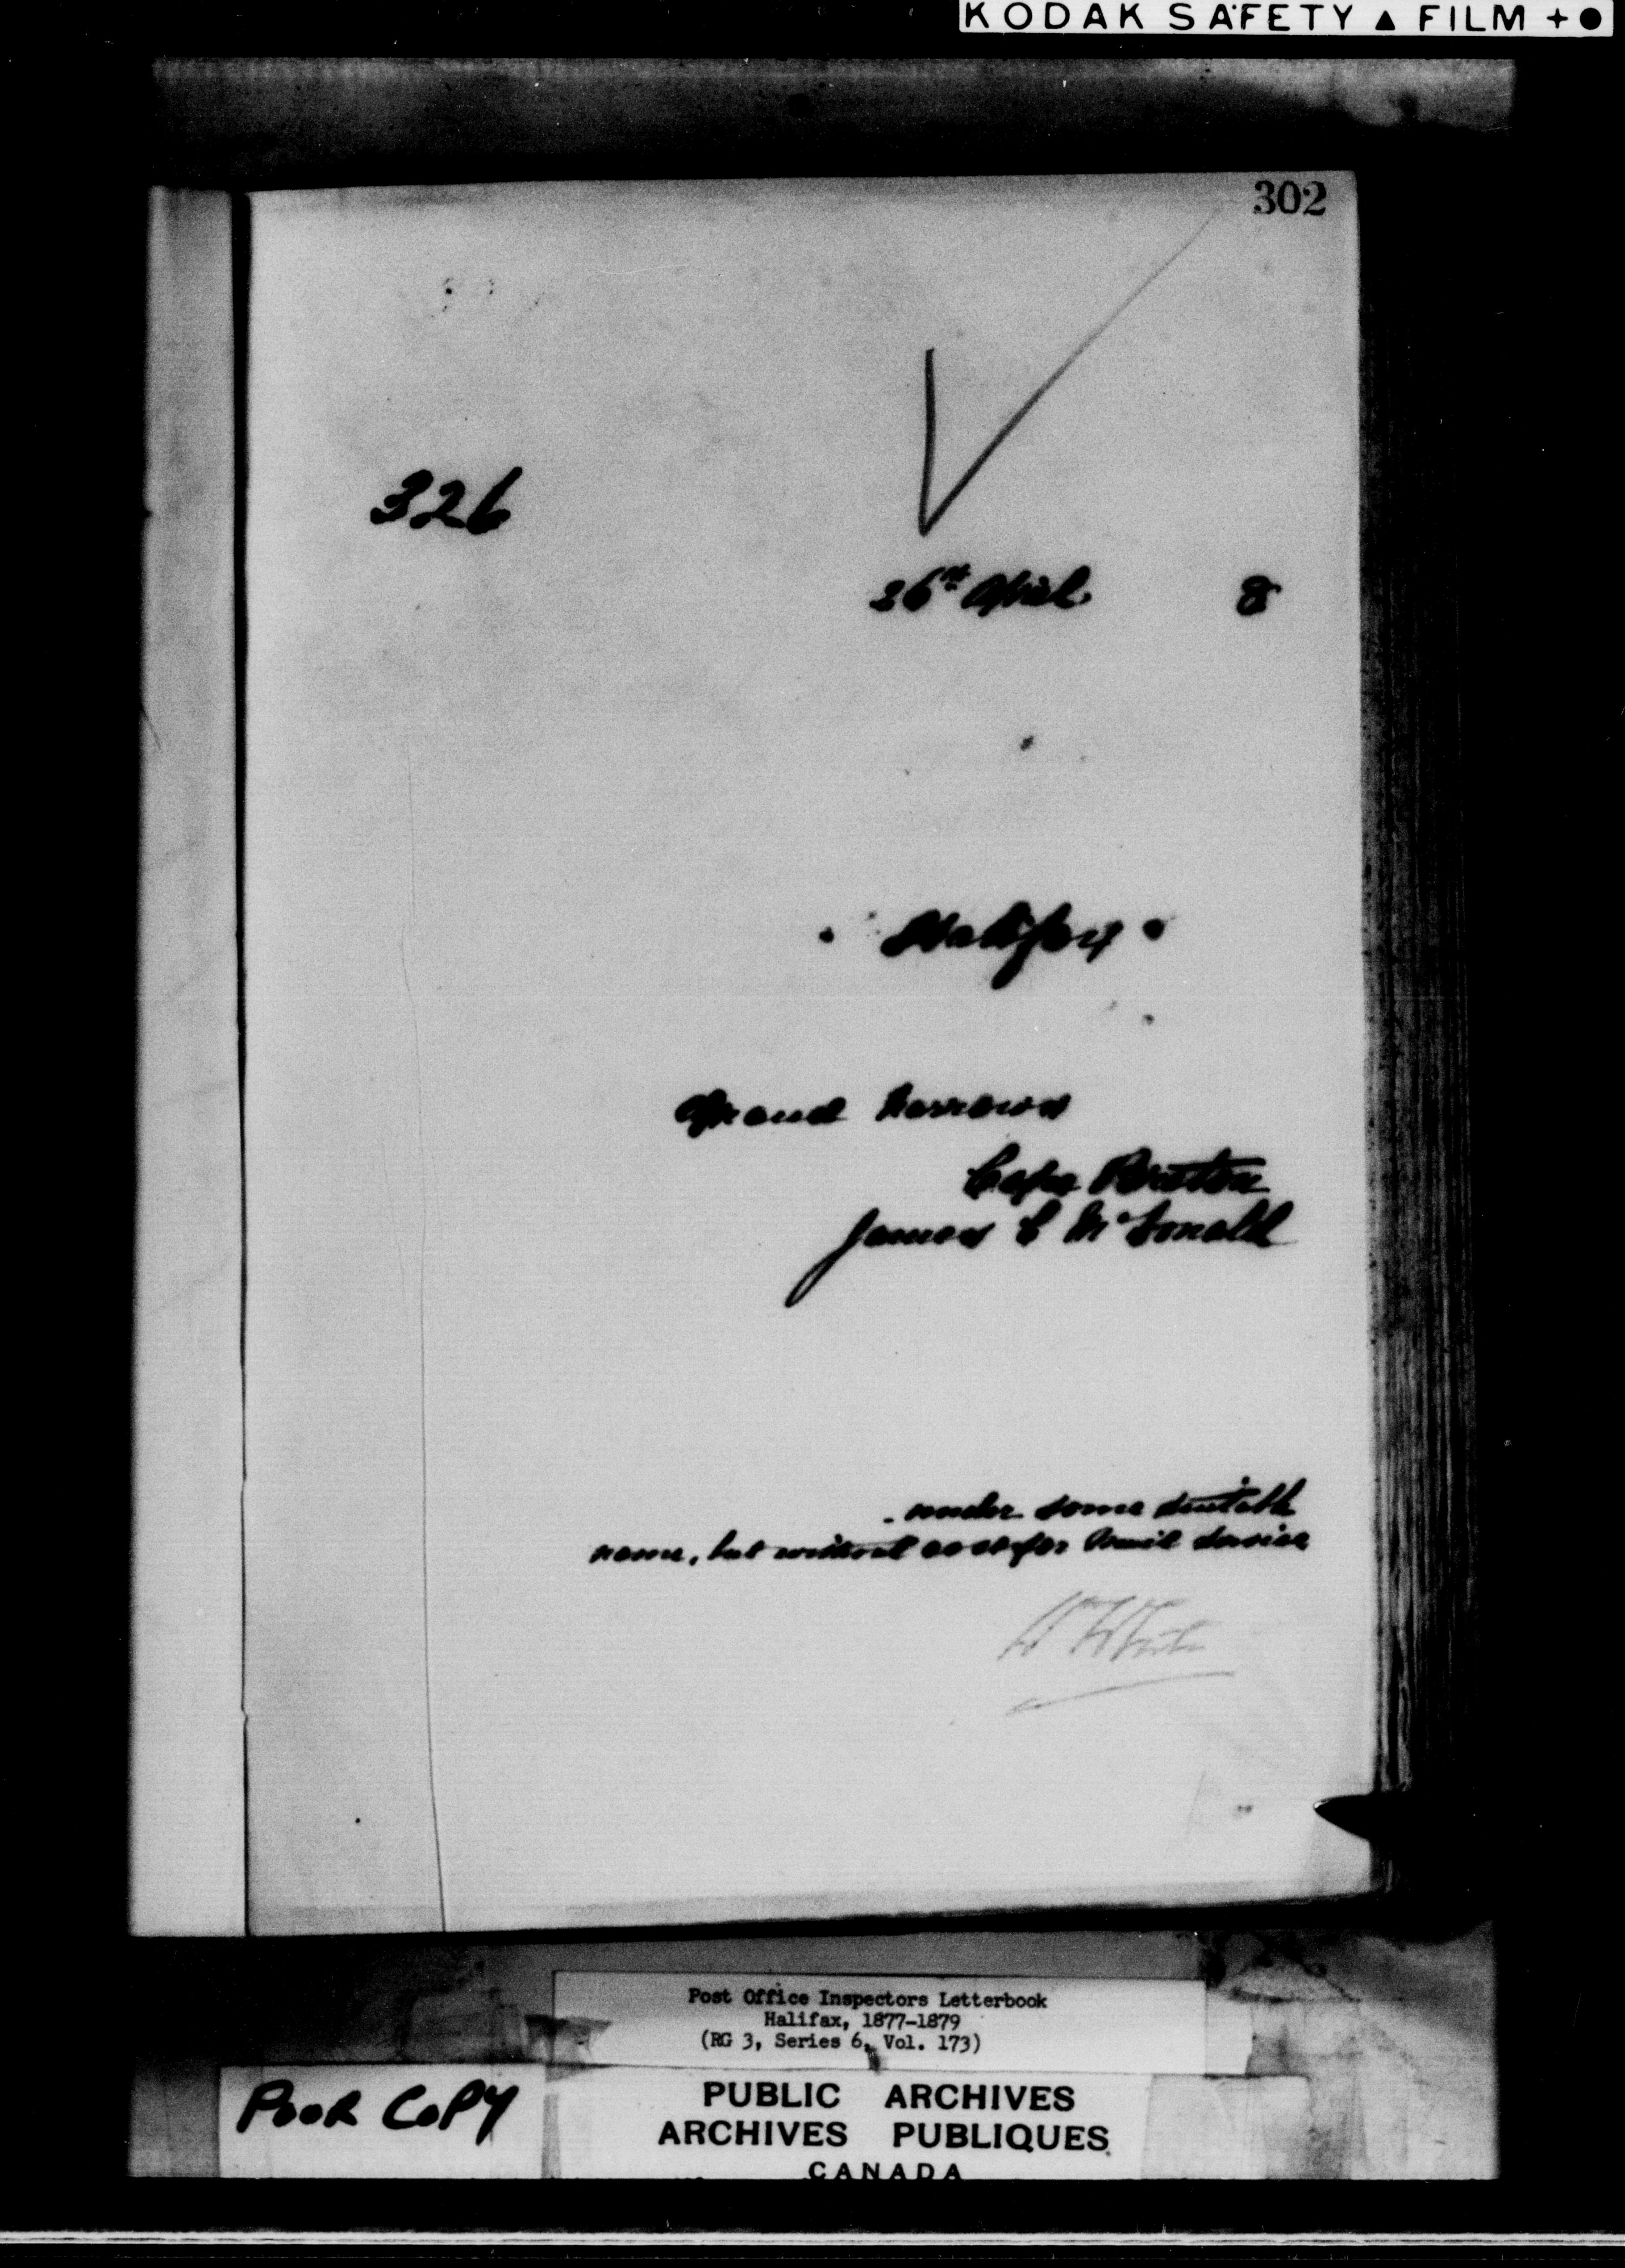 KODAK SAFETY ▲ FILM + ●
302
326
26th April 8
Halifax
Grand Narrows
Cape Breton
James C McDonald
under some suitable
name, but without cost for Mail Service
Post Office Inspectors Letterbook
Halifax, 1877-1879
(RG 3, Series 6, Vol. 173)
POOR COPY
PUBLIC ARCHIVES
ARCHIVES PUBLIQUES
CANADA